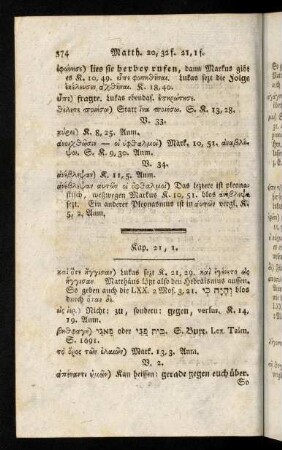 574 Matth. 20, 32 f. 21, 1 f.
ἐφώνησε) lies sie herbey rufen, dann Markus gibt
es K. 10, 49. εἶπεν φωνηθῆναι. Lukas sezt die Folge
ἐκέλευσεν ἀχθῆναι. K. 18, 40.
εἶπε) fragte. Lukas ebendas. ἐπηρώτησε.
θέλετε ποιήσω) Statt ἵνα ποιήσω. S. K. 13, 28.
V. 33.
κύριε) K. 8, 25. Anm.
ἀνοιχθῶσιν — οἱ ὀφθαλμοὶ) Mark. 10, 51. ἀναβλέ-
ψω. S. K. 9, 30. Anm.
V. 34.
ἀνέβλεψαν) K. 11, 5. Anm.
ἀνέβλεψαν αὐτῶν οἱ ὀφθαλμοὶ) Das leztere ist pleona-
stisch, weßwegen Markus K. 10, 51. blos ἀναβλέψω
sezt. Ein anderer Pleonasmus ist in αὐτῶν vergl. K.
5, 2, Anm.
Kap. 21, 1.
καὶ ὅτε ἤγγισαν) Lukas sezt K. 21, 29. καὶ ἐγένετο ὡς
ἤγγισαν Matthäus läßt also den Hebraismus aussen.
So geben auch die LXX. 2 Mos. 3, 21. והיה כי blos
durch ὅταν δὲ.
εἰς ὄρος) Nicht: zu, sondern: gegen, versus. K. 14,
19. Anm.
βηθφαγὴ) פאגי oder בית פגי. S. Buxt. Lex. Talm.
S. 1691.
τὸ ὄρος τῶν ἐλαιῶν) Mark. 13, 3. Anm.
V. 2.
ἀπέναντι ὑμῶν) Kan heissen: gerade gegen euch über.
So